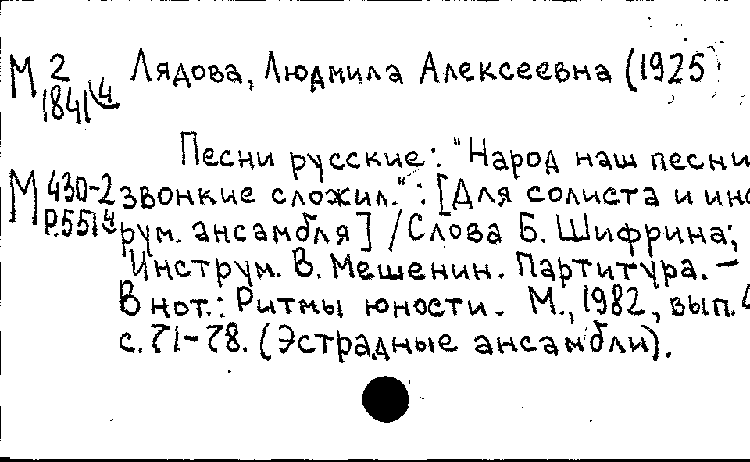 М 2 Лядова, Людмила Алексеевна (1925
1841
Песни русские: "Народ наш песни
М 430-2 звонкие сложил.": [Для солиста и инс
Р.551 рум. ансамбля] / Слова Б. Шифрина;
Инструм. В. Мешенин. Партитура. –
В нот.: Ритмы юности. М., 1982, вып.
с. 71-78. (Эстрадные ансамбли).